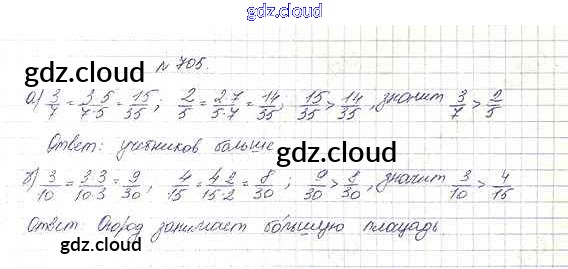 gdz.cloud
gdz.cloud
№ 705.
а) 3/7 = 3·5/7·5 = 15/35; 2/5 = 2·7/5·7 = 14/35; 15/35 > 14/35, значит 3/7 > 2/5
Ответ: учебников больше
gdz.cloud
б) 3/10 = 3·3/10·3 = 9/30, 4/15 = 4·2/15·2 = 8/30; 9/30 > 8/30, значит 3/10 > 4/15
gdz.cloud
Ответ Огород занимает бо́льшую площадь
gdz.cloud
gdz.cloud